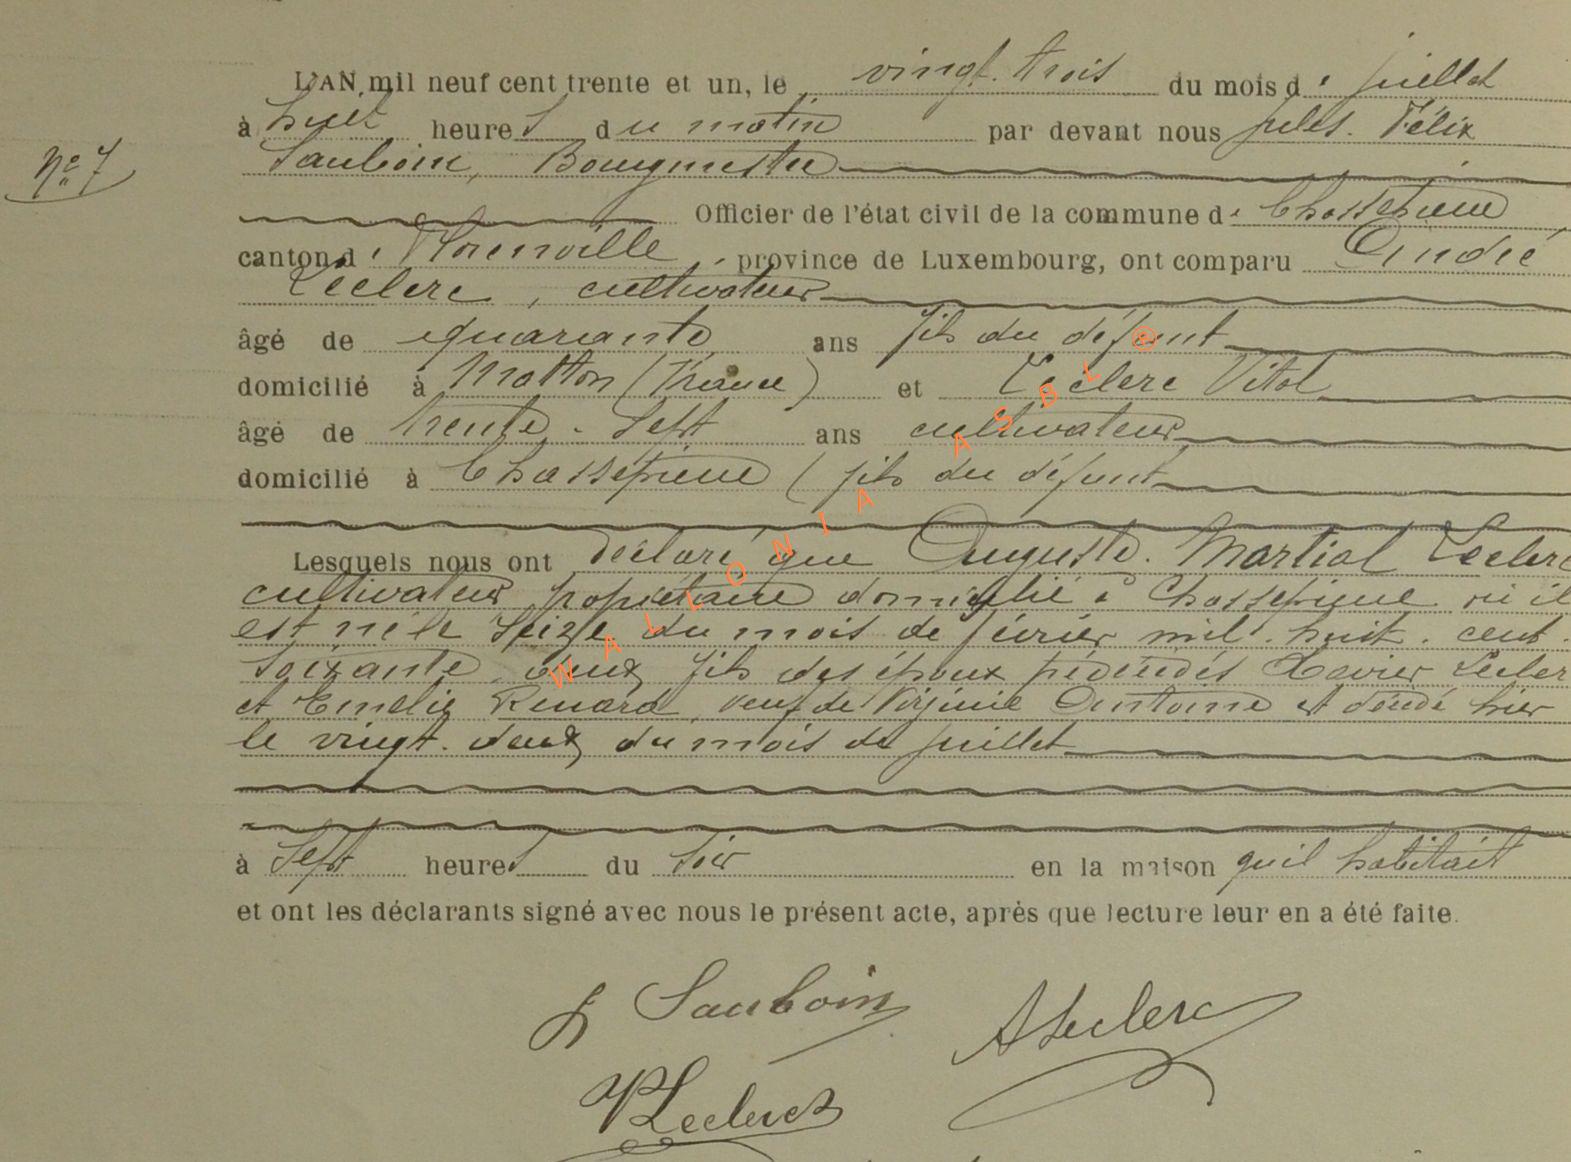 L'AN mil neuf cent trente et un, le vingt-trois du mois de juillet
à huit heures du matin par devant nous Jules-Félix
N° 7
Sauboin, Bourgmestre
Officier de l'état civil de la commune de Chassepierre
canton de Florenville, province de Luxembourg, ont comparu André
Leclerc, cultivateur
âgé de quarante ans fils du défunt
domicilié à Matton (France) et Leclerc Vital
âgé de trente-sept ans cultivateur
domicilié à Chassepierre (fils du défunt
Lesquels nous ont déclaré que Auguste-Martial Leclerc
cultivateur propriétaire domicilié à Chassepierre où il
est né le seize du mois de février mil-huit-cent-
soixante-deux, fils des époux décédés Xavier Lecler
et Emélie Renard, veuf de Virginie Antoine est décédé hier
le vingt-deux du mois de juillet
à sept heures du soir en la maison qu'il habitait
et ont les déclarants signé avec nous le présent acte, après que lecture leur en a été faite.
Sauboin ALeclerc
VLeclerc
WALLONIA ASBL ©